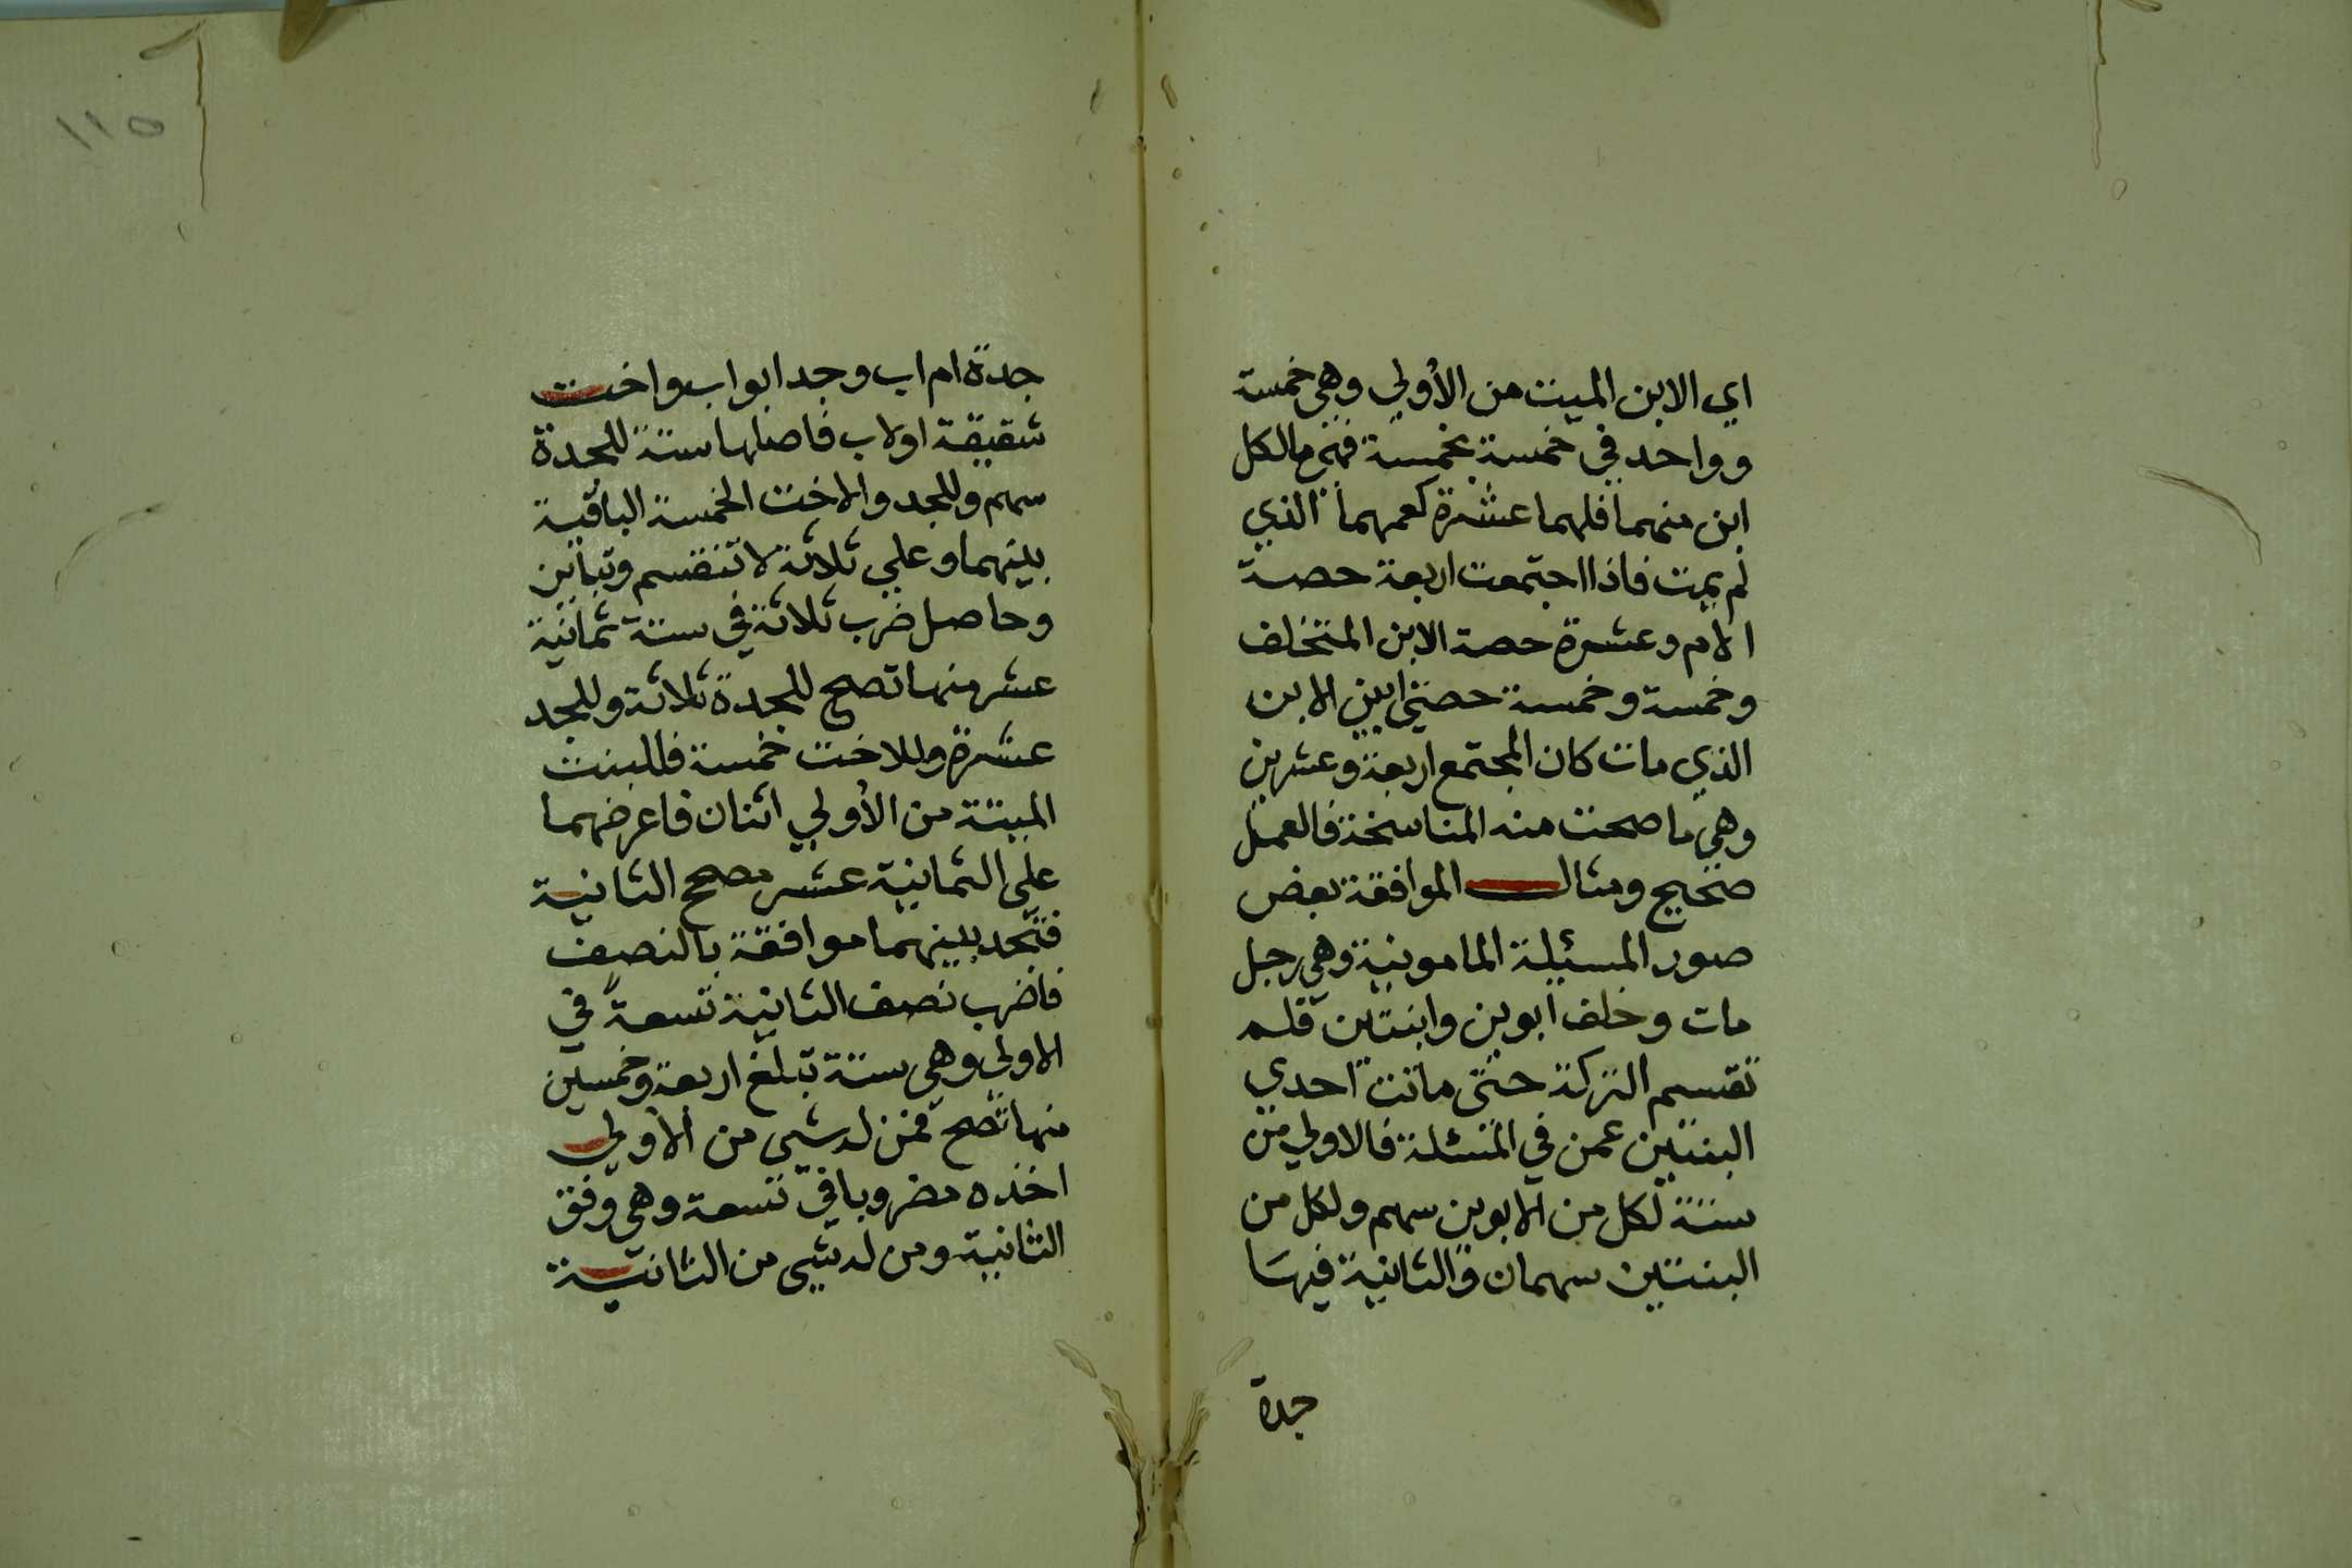 اي الابن الميت من الأولي وهي خمسة
وواحد في خمسة بخمسة فهم مالكل
ابن منهما فلهما عشرة كعمهما الذي
لم يمت فاذا اجتمعت اربعة حصة
الام وعشرة حصة الابن المتخلف
وخمسة وخمسة حصتي ابني الابن
الذي مات كان المجتمع اربعة وعشرين
وهي ما صحت منه المناسخة فالعمل
صحيح ومثال الموافقة بعض
صور المسئلة المامونية وهي رجل
مات وخلف ابوين وابنتين فلم
تقسم التركة حتى ماتت احدي
البنتين عمن في المسئلة فالاولي من
ستة لكل من الابوين سهم ولكل من
البنتين سهمان والثانية فيها
جدة
جدة ام اب وجد ابو اب واخت
شقيقة او لاب فاصلها ستة للجدة
سهم وللجد والاخت الخمسة الباقية
بينهما وعلي ثلاثة لا تنقسم وتباين
وحاصل ضرب ثلاثة في ستة ثمانية
عشر منها تصح للجدة ثلاثة وللجد
عشرة وللاخت خمسة فللبنت
الميتة من الأولي اثنان فاعرضهما
علي الثمانية عشر مصحح الثانية
فتجد بينهما موافقة بالنصف
فاضرب نصف الثانية تسعة في
الاولي وهي ستة تبلغ اربعة وخمسين
منها تصح فمن له شيي من الاولي
اخذه مضروبا في تسعة وهي وفق
الثانية ومن له شيي من الثانية
١١٥